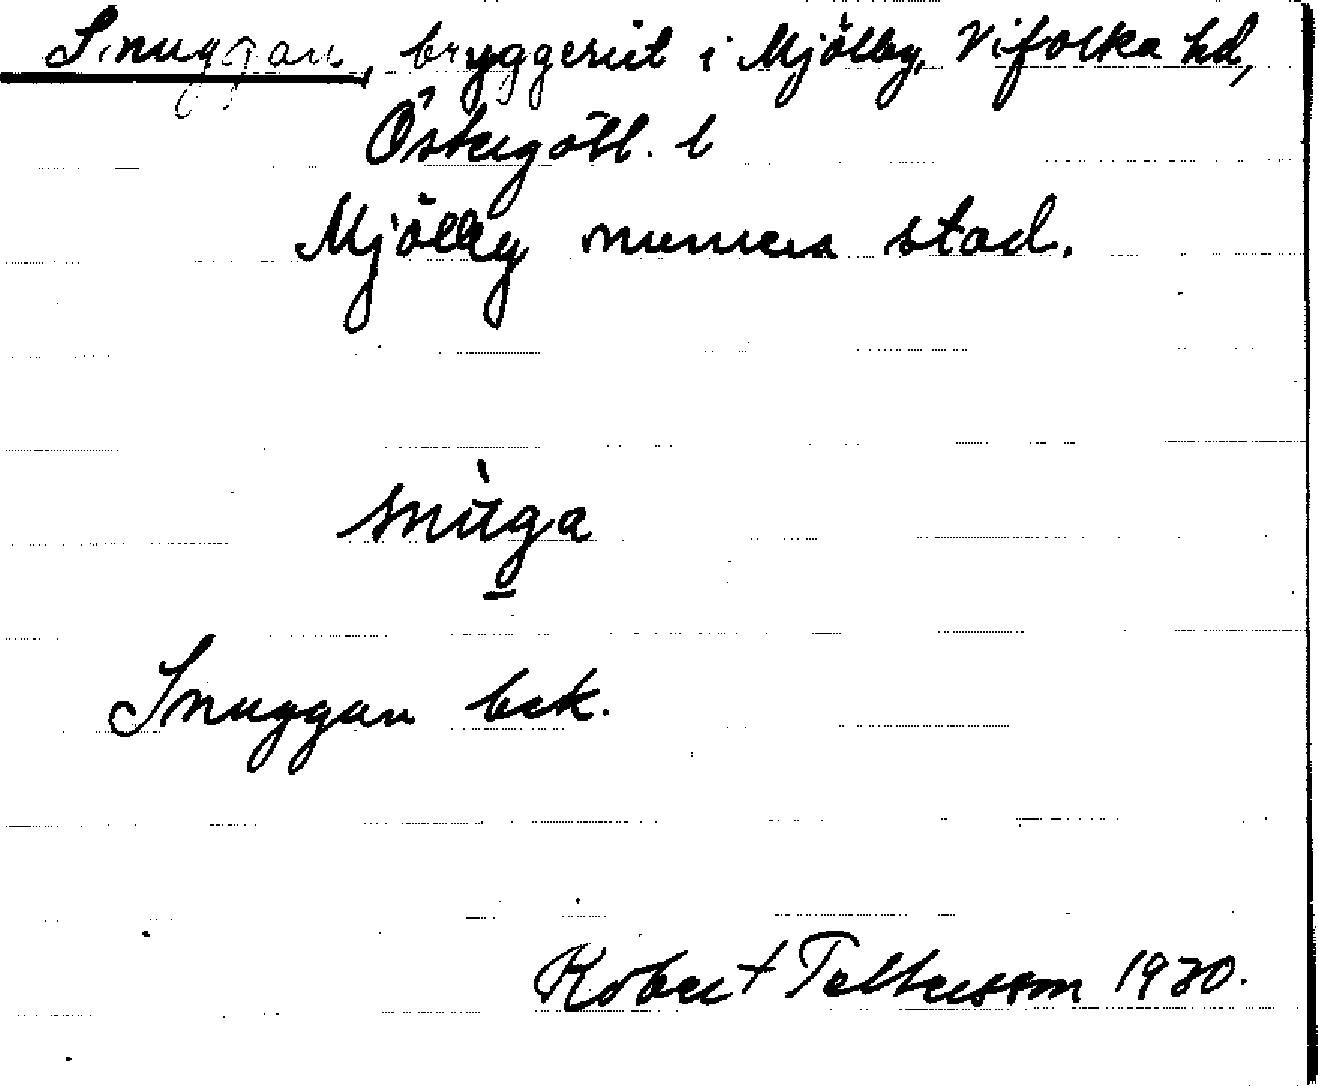 Snuggan, bryggeriet i Mjölby, Vifolka hd,
Östergötl. l
Mjölby numera stad.
snùga
Snuggan bek.
Robert Pettersson 1930.